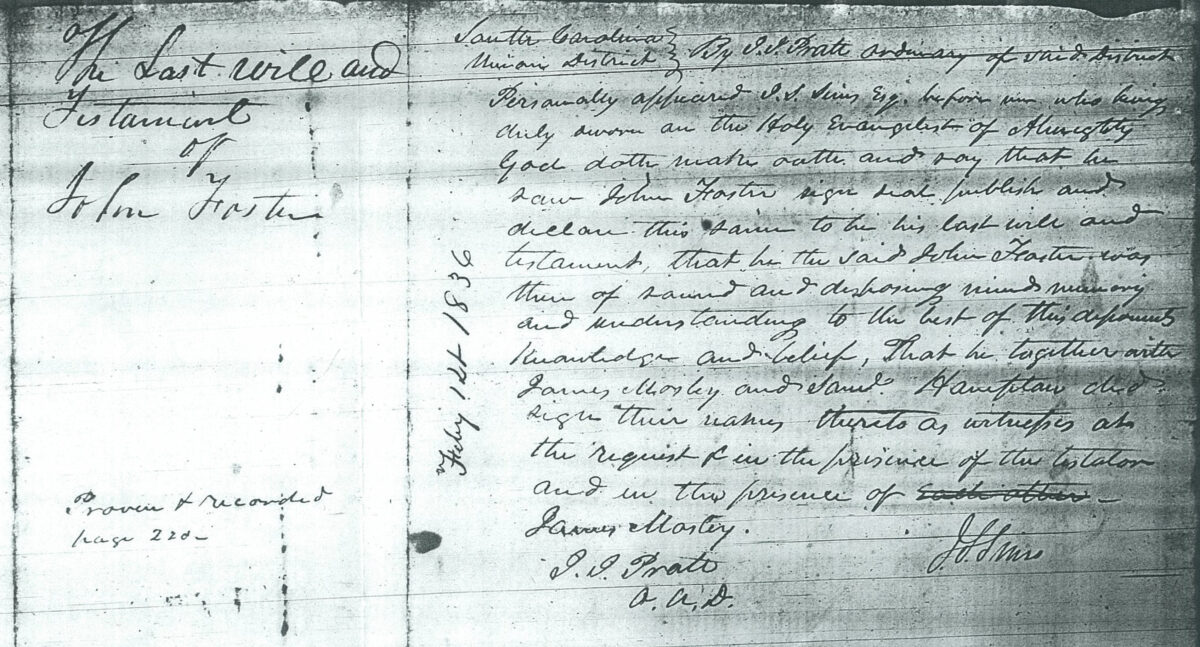 The Last will and
Testament
of
John Foster
Proven & recorded
page 220
Feby 1st 1836
South Carolina
Union District } By J. J. Pratt ordinary of said District
Personally appeared J. S. Sims Esq. before me who being
duly sworn on the Holy Evangelist of Almighty
God doth make oath and say that he
saw John Foster sign seal publish and
declare this same to be his last will and
testament, that he the said John Foster was
then of sound and disposing mind memory
and understanding to the best of this deponents
knowledge and belief, That he together with
James Mosley and Saml. Hampton did
sign their names thereto as witnesses at
the request & in the presence of the testator
and in the presence of each other -
James Mosley.
J. J. Pratt
O. U. D.
J. S. Sims